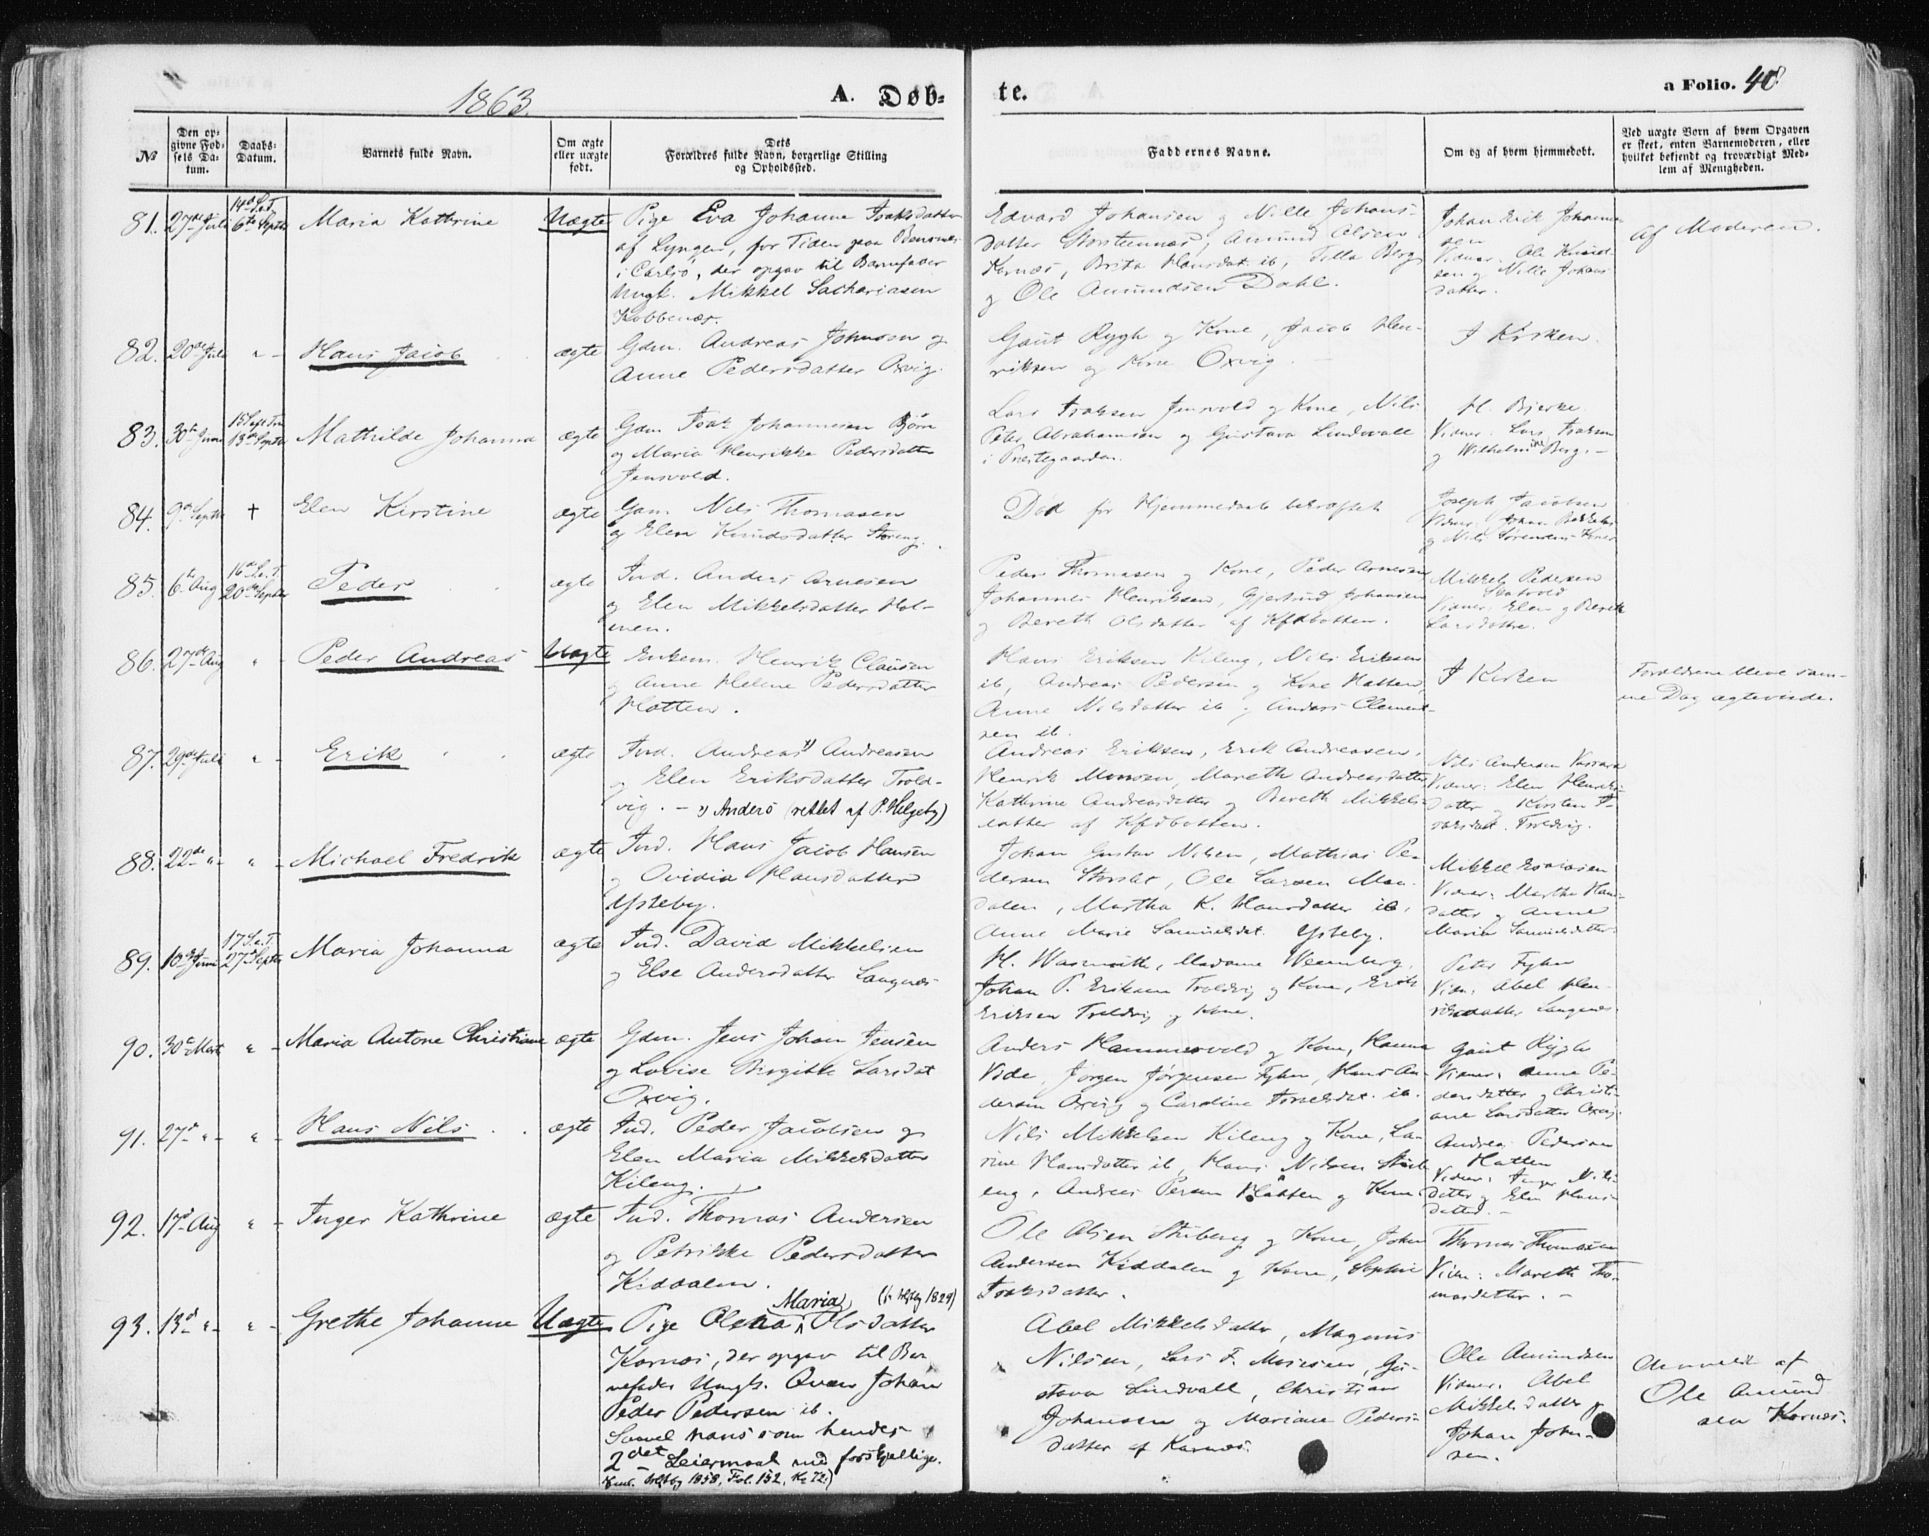 1863.
A. Døb=
te.
a Folio. 40
№
Den op=
givne Fød=
sels Da=
tum.
Daabs=
Datum.
Barnets fulde Navn.
Om ægte
eller uægte
født.
Dets
Forældres fulde Navn, borgerlige Stilling
og Opholdssted.
Faddernes Navne.
Om og af hvem hjemmedøbt.
Ved uægte Børn af hvem Opgaven
er skeet, enten Barnemoderen, eller
hvilket bekjendt og troværdigt Med=
lem af Menigheden.
81. 27de Juli
14de S. e. T.
6te Septbr
Maria Kathrine
Uægte
Pige Eva Johanne Isaksdatter
af Lyngen, for Tiden paa
i Carlsø, der opgav til Barnefader
Ungk. Mikkel Sachariasen
Kobbenæs.
Edvard Johansen og Nille Johans-
datter Storsteennæs, Amund Olsen
Kornæs, Brita Hansdat. ib, Berg
og Ole Amundsen Dahl.
Johan Erik Johanne
sen
Vidner: Ole Knud-
sen og Nille Johans
datter.
af Moderen.
82. 20de Juli
" -
Hans Jacob
ægte
Gdm. Andreas Johnsen og
Anne Pedersdatter Oxvig.
Gaut Rygh og Kone, Jacob Hen-
riksen og Kone Oxvig. -
I Kirken.
83. 30te Juni
15 S. e. Trin
13de Septbr
Mathilde Johanna
ægte
Gdm. Isak Johannesen Bjørn
og Maria Henrikke Pedersdatter
Jensvold.
Lars Isaksen Jensvold og Kone, Nils
Peter Abrahamsen og Gustava Lindvall
i Præstegaarden.
H. Bjerke.
Vidner: Lars Isaksen
og Wilhelmine Berg. -
84. 9de Septbr
†
Elen Kirstine
ægte
Gdm. Nils Thomasen
og Elen Knudsdatter Storeng.
Død før Hjemmedaab bekræftet
Joseph Jacobsen
Vidner: Johan
og Nils Sørensens Kone
85. 6te Aug
16de S. e. T.
20de Septbr
Peder
ægte
Ind. Anders Arnesen
og Elen Mikkelsdatter Hol-
men.
Peder Thomasen og Kone, Peder Arnesen
Johannes Henriksen, Gjertrud Johansen
og Bereth Olsdatter af Kfdbotten.
Mikkel Pedersen
Vidner: Elen og Bereth
Larsdøttre.
86. 27de Aug
"
Peder Andreas
Uægte
Enkem. Henrik Clausen
og Anne Helene Pedersdatter
Hatten.
Hans Eriksen Kileng, Nils Eriksen
ib, Andreas Pedersen og Kone Hatten,
Anne Nilsdatter ib og Anders Clement-
sen ib.
I Kirken
Forældrene bleve sam-
me Dag ægteviede.
87. 29de Juli
" -
Erik
ægte
Ind. Andreas 1) Andreasen
og Elen Eriksdatter Trold-
vig. - 1) Anders (rettet af P. Helgeby)
Andreas Eriksen, Erik Andreasen,
Henrik Monsen, Mareth Andreasdatter
Kathrine Andreasdatter og Bereth Mikkels-
datter af Kfdbotten.
Nils Andersen
Vidner: Elen Henriks
datter og Kirsten
Troldvig.
88. 22de " -
" -
Michael Fredrik
ægte
Ind. Hans Jacob Hansen
og Ovidia Hansdatter
Ysteby.
Johan Gustav Nilsen, Mathias Pe-
dersen Storslet, Ole Larsen Man-
dalen, Martha K. Hansdatter ib,
Anne Marie Samuelsdat. Ysteby.
Mikkel Esaiasen
Vidner: Martha Hans
datter og Anne
Maria Samuelsdatter.
89. 10de Juni
17 S. e. T.
27de Septbr
Maria Johanna
ægte
Ind. David Mikkelsen
og Else Andersdatter Langnæs
H. Wasmuth, Madame Wennberg,
Johan P. Eriksen Troldvig og Kone, Erik
Eriksen Troldvig og Kone.
Peter Fyhn
Vidn: Abel Hen-
riksdatter Langnæs.
90. 30te Marts
" -
Maria Antone Christiane
ægte
Gdm. Jens Johan Jensen
og Lovise Birgitte Larsdat
Oxvig.
Anders Hammervold og Kone, Hanna
Vide, Jørgen Jørgensen Fyhn, Hans An-
dersen Oxvig og Caroline ib.
Gaut Rygh
Vidner: Anne Pe-
dersdatter og Christi-
ane Larsdatter Oxvig.
91. 27de " -
" -
Hans Nils
ægte
Ind. Peder Jacobsen og
Elen Maria Mikkelsdatter
Kileng.
Nils Mikkelsen Kileng og Kone, La-
rine Hansdatter ib, Hans Nilsen
eng, Andreas Persen Hatten og Kone
Andreas Pedersen
Hatten
Vidner: Inger Nils-
datter og Elen Hans-
datter. -
92. 17de Aug
" -
Inger Kathrine
ægte
Ind. Thomas Andersen
og Petrikke Pedersdatter
Kiddalen.
Ole Olsen Stuberg og Kone, Johan
Andersen Kiddalen og Kone, Sophie
Isaksdatter. -
Thomas Thomassen
Vidn: Mareth Tho-
masdatter. -
93. 13de " -
" -
Grethe Johanne
Uægte
Maria
Pige Olena Olsdatter
Kornæs, der opgav til Bar-
nefader Ungk. Qvæn Johan
Peder Pedersen ib.
Samt hans som hendes
2det Leiermaal med forskjellige.
Abel Mikkelsdatter, Magnus
Nilsen, Lars F. Mosesen, Gu-
stava Lindvall, Christian
Johansen og Mariane Peders-
datter af Kornæs.
Olle Amundsen
Vidner: Abel
Mikkelsdatter og
Johan Johan-
sen.
Anmeldt af
Ole Amund
sen Kornæs.